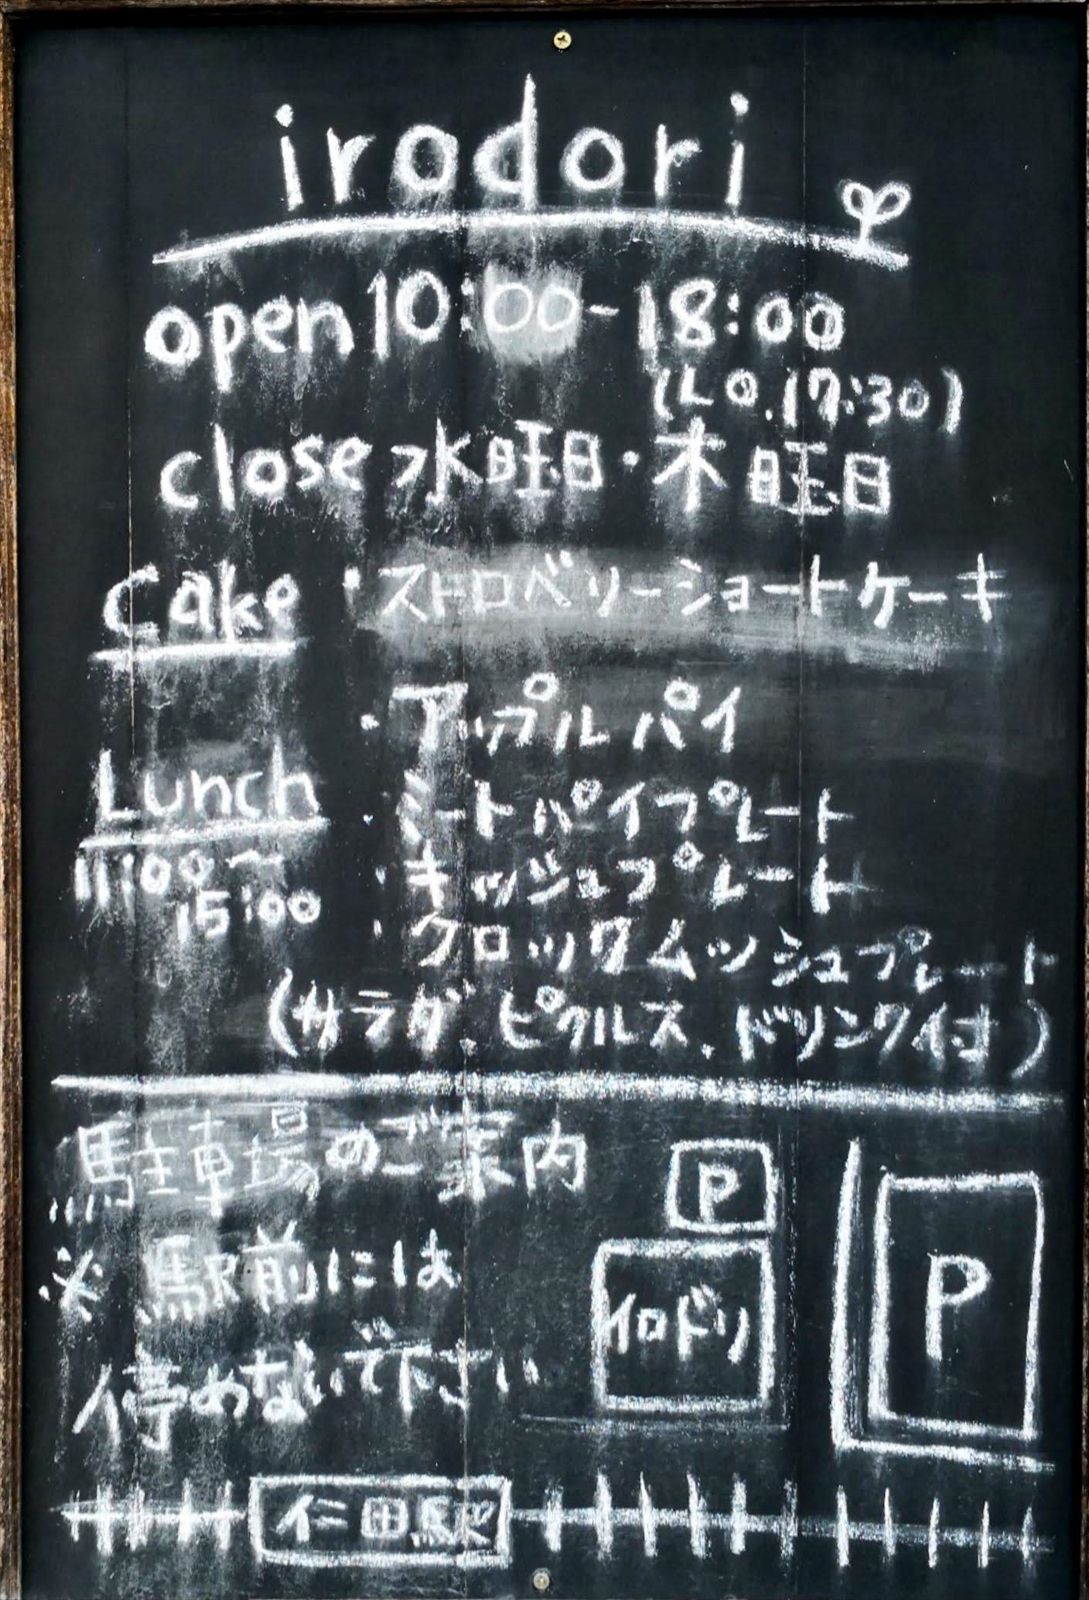 irodori
open 10:00-18:00
(L.O.17:30)
close 水曜日・木曜日
Cake ・ストロベリーショートケーキ
・アップルパイ
Lunch
11:00〜
15:00
・ミートパイプレート
・キッシュプレート
・クロックムッシュプレート
(サラダ、ピクルス、ドリンク付)
駐車場のご案内
※ 駅前には
停めないで下さい
P
イロドリ
P
仁田駅